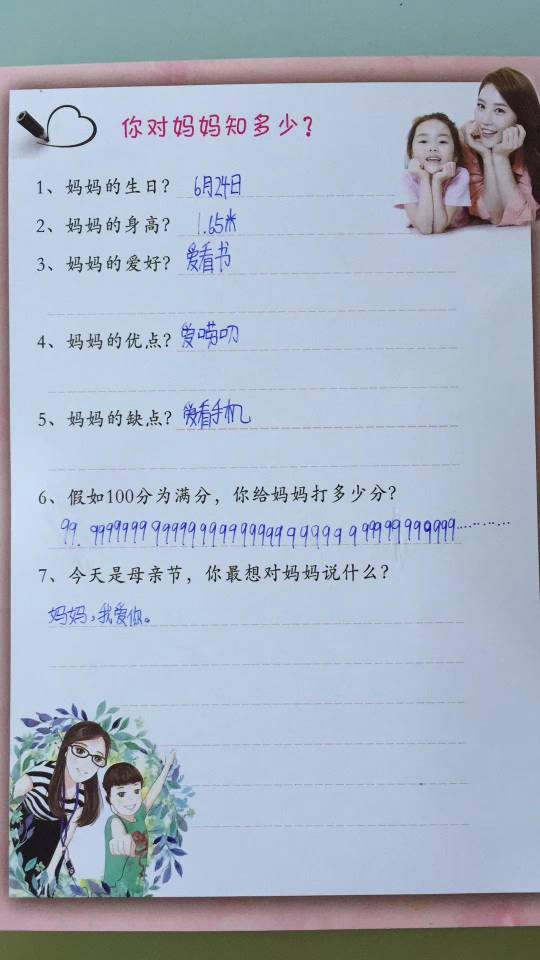 你对妈妈知多少？
1、妈妈的生日？ 6月24日
2、妈妈的身高？ 1.65米
3、妈妈的爱好？ 爱看书
4、妈妈的优点？ 爱唠叨
5、妈妈的缺点？ 爱看手机
6、假如100分为满分，你给妈妈打多少分？
99.9999999999999999999999999999999999999………
7、今天是母亲节，你最想对妈妈说什么？
妈妈，我爱你。